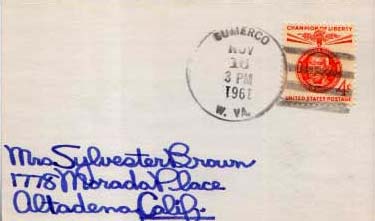 SUMERCO
NOV
16
3 PM
1961
W. VA.
CHAMPION OF LIBERTY
4¢
UNITED STATES POSTAGE
Mrs Sylvester Brown
1778 Morada Place
Altadena Calif.